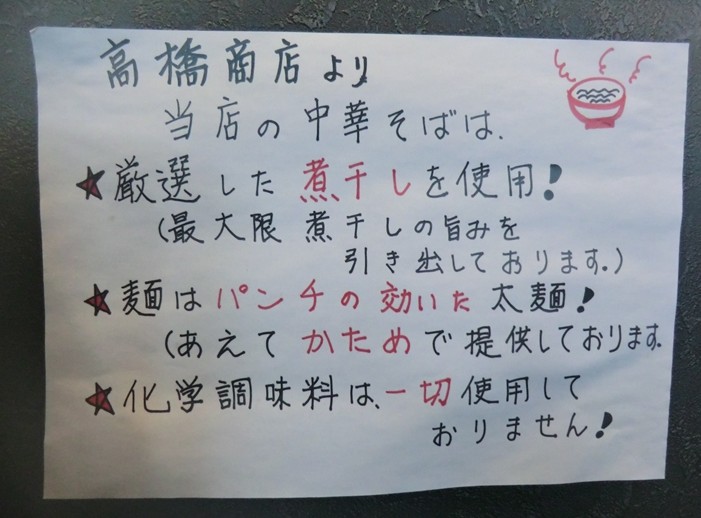 高橋商店より
当店の中華そばは、
★厳選した煮干しを使用!
(最大限煮干しの旨みを
引き出しております。)
★麺はパンチの効いた太麺!
(あえてかためで提供しております.
★化学調味料は、一切使用して
おりません!